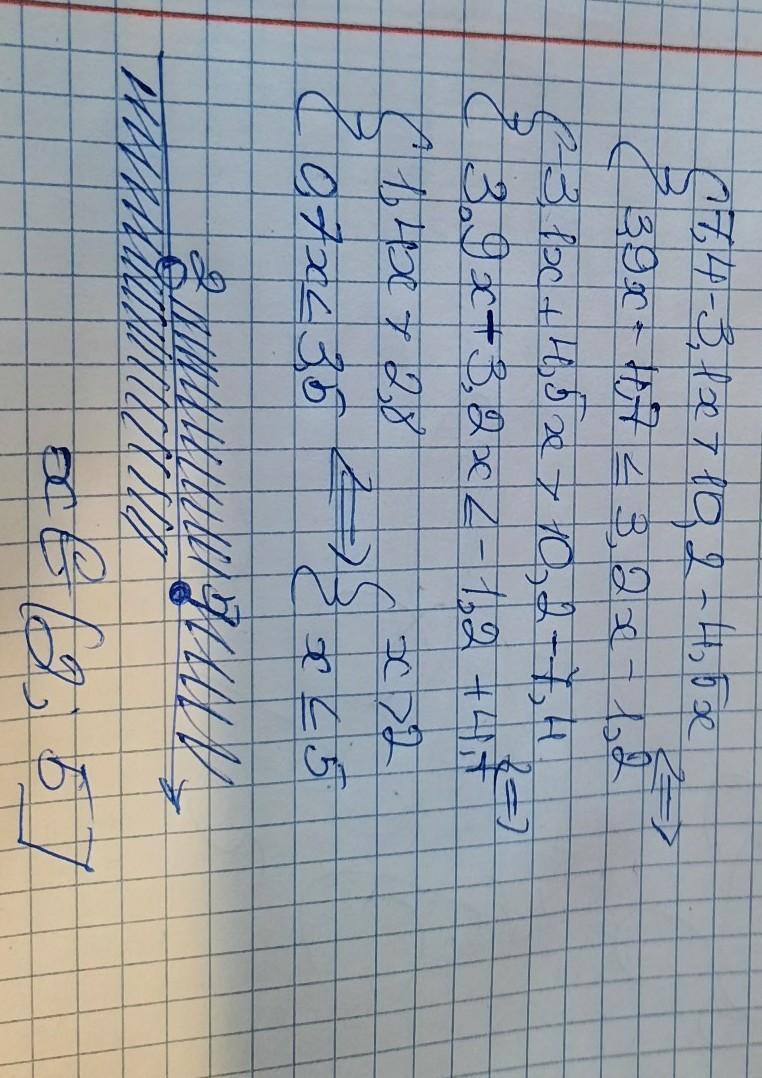 { 7,4-3,1x > 10,2-4,5x
{ 3,9x-4,7 ≤ 3,2x-1,2 <=>
{ -3,1x+4,5x > 10,2-7,4
{ 3,9x-3,2x ≤ -1,2+4,7 <=>
{ 1,4x > 2,8
{ 0,7x ≤ 3,5 <=> { x > 2
{ x ≤ 5
2 5
x ∈ (2; 5]